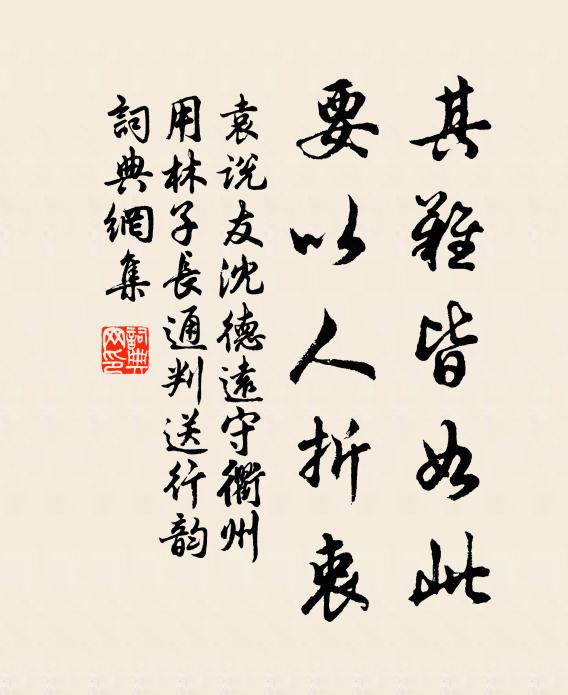 其難皆如此
要以人折衷
袁说友沈德遠守衢州
用林子長通判送行韵
詞典網集
詞典網印